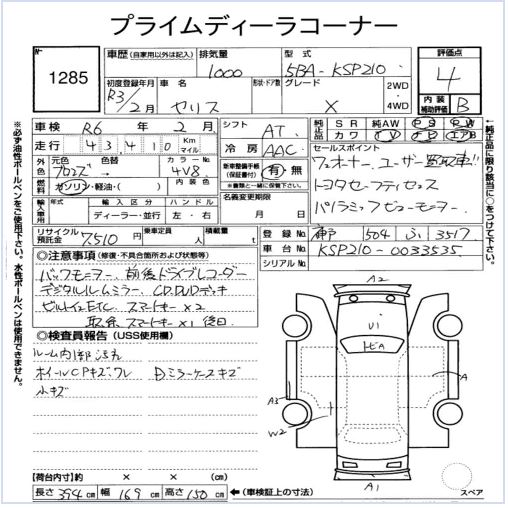 プライムディーラコーナー
No 1285
車歴 (自家用以外は記入) 排気量 1000 型式 5BA-KSP210 評価点 4
初度登録年月 R3/2月 車名 ヤリス 形状・ドア数 グレード X 2WD・4WD 内装補助評価 B
車検 R6年2月 シフト AT 純正品 SR 純AW PS PW
走行 43,410 Km マイル 冷房 AAC カワ TV ナビ エアB
外色 元色 ブロンズ 色替 カラーNo. 4V8 新車整備手帳(保証書付) 有・無 ※書類と一緒に保管下さい。
セールスポイント
ワンオーナー、ユーザー買取車!!
トヨタセーフティセンス
パノラミックビューモニター
燃料 ガソリン・軽油・( ) 内装色
輸入車用 年式 輸入区分 ディーラー・並行 ハンドル 左・右 名義変更期限 月 日
リサイクル預託金 7510円 乗車定員 人 積載量 t
登録No. 504 ふ 3517
車台No. KSP210-0033535
シリアルNo.
◎注意事項 (修復・不具合箇所および状態等)
バックモニター 前後ドライブレコーダー
デジタルルームミラー CD,DVDデッキ
ビルトインETC スマートキー×2
取糸 スマートキー×1 後日
◎検査員報告 (USS使用欄)
ルーム内汚れ
ホイールCPキズワレ Dミラーケースキズ
小キズ
A2
U1
トビA
A3
A
W2
A1
スペア
【荷台内寸】 約 × × (cm)
長さ 394cm 幅 169cm 高さ 150cm ←(車検証上の寸法)
※必ず油性ボールペンをご使用下さい。水性ボールペンは使用できません。
←純正品に限り該当に○をつけて下さい。